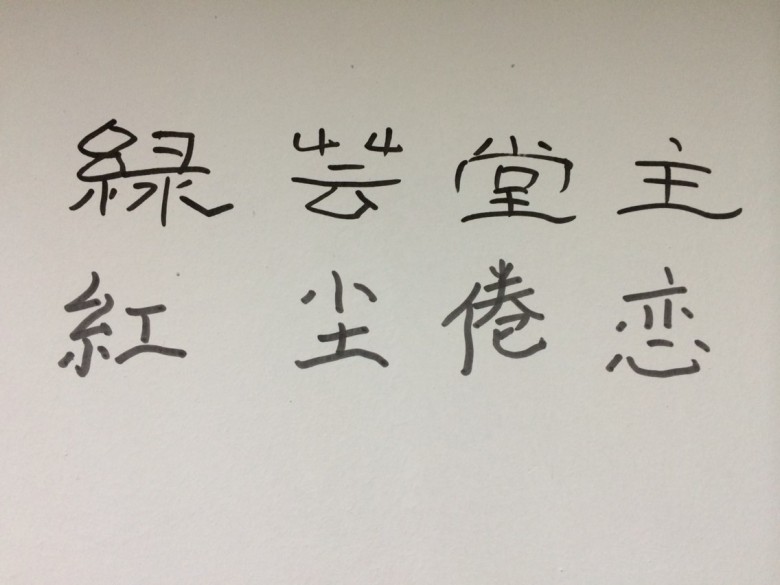 緑芸堂主
紅尘倦恋